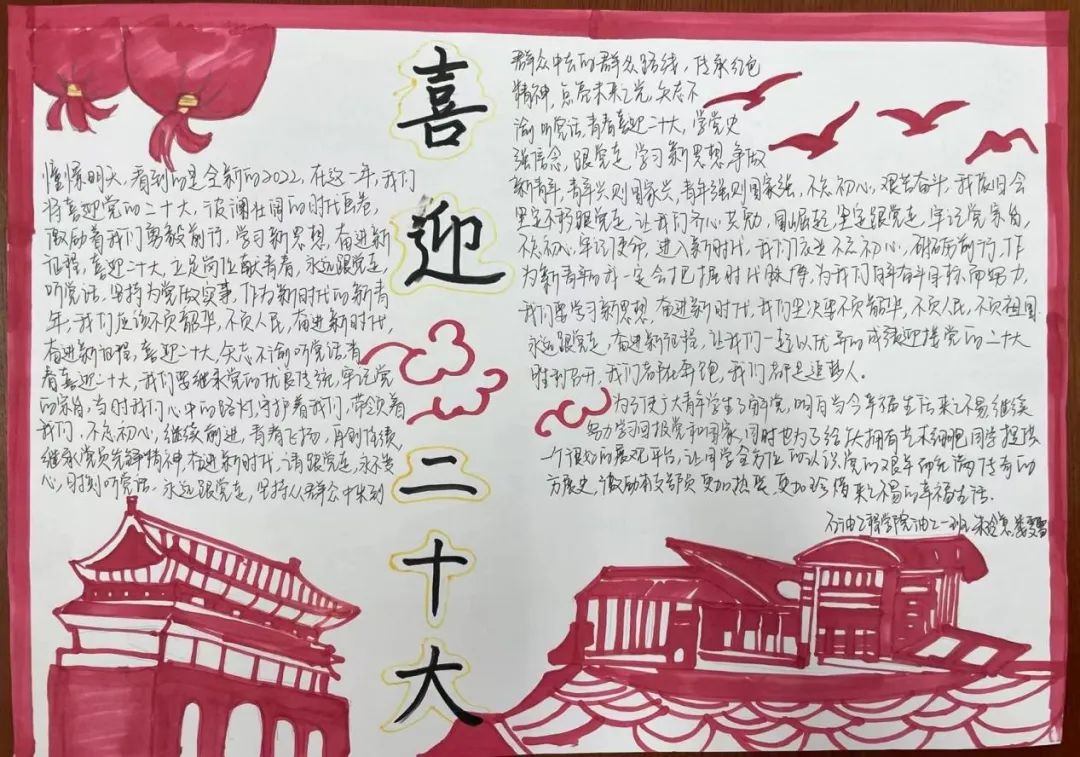 喜迎二十大
憧憬明天，看到的是全新的2022，在这一年，我们
将喜迎党的二十大，波澜壮阔的时代画卷，
激励着我们勇毅前行，学习新思想，奋进新
征程，喜迎二十大，立足岗位献青春，永远跟党走，
听党话，坚持为党做实事，作为新时代的新青
年，我们应该不负韶华，不负人民，奋进新时代，
奋进新征程，喜迎二十大，矢志不渝听党话，青
春喜迎二十大，我们要继承党的优良传统，牢记党
的家旨，当时我们心中的路灯，守护着我们，带领着
我们，不忘初心，继续前进，青春飞扬，再创佳绩，
继承党员先锋精神，奋进新时代，请跟党走，永不变
心，时刻听党话，永远跟党走，坚持从群众中来到
群众中去的群众路线，传承红色
精神，点亮未来之党，矢志不
渝听党话，青春喜迎二十大，学党史
强信念，跟党走，学习新思想争做
新青年，青年兴则国家兴，青年强则国家强，不忘初心，艰苦奋斗，我依旧会
坚定不移跟党走，让我们齐心共励，国崛起，坚定跟党走，牢记党家旨，
不忘初心，牢记使命，进入新时代，我们永远不忘初心，砥砺前行，作
为新青年的我一定会把握时代脉搏，为我们青年奋斗目标而努力，
我们要学习新思想，奋进新时代，我们坚决要不负韶华，不负人民，不负祖国
永远跟党走，奋进新征程，让我们一起以优异的成绩迎接党的二十大
胜利召开，我们都在奔跑，我们都是追梦人。
为了使广大青年学生了解党，明白当今幸福生活来之不易，继续
努力学习回报党和国家，同时也为了给广大拥有艺术细胞同学提供
一个很好的展现平台，让同学全方位的认识党的艰辛而充满传奇的
历史，激励支部员更加热爱，更加珍惜来之不易的幸福生活。
石油工程学院油工一班